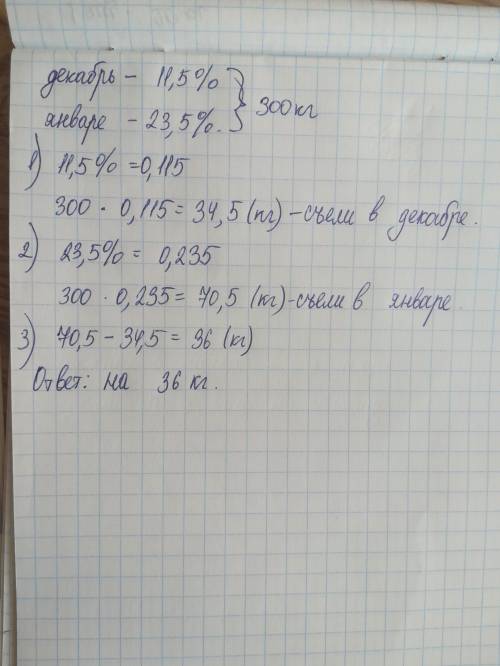 декабрь - 11,5% } 300кг
январе - 23,5%.
1) 11,5% = 0,115
300 · 0,115 = 34,5 (кг) - съели в декабре.
2) 23,5% = 0,235
300 · 0,235 = 70,5 (кг) - съели в январе.
3) 70,5 - 34,5 = 36 (кг)
Ответ: на 36 кг.